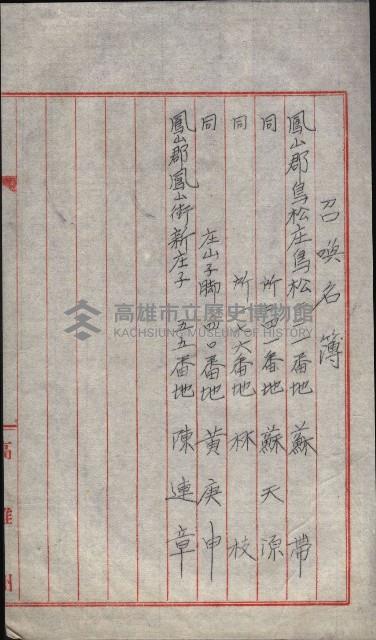 召喚名簿
鳳山郡鳥松庄鳥松一一番地 蘇 帶
同 所四一番地 蘇天源
同 所一六番地 林 枝
同 庄山子脚一四〇番地 黃庚申
鳳山郡鳳山街新庄子 五五番地 陳連章
高雄州
高雄市立歷史博物館
KAOHSIUNG MUSEUM OF HISTORY